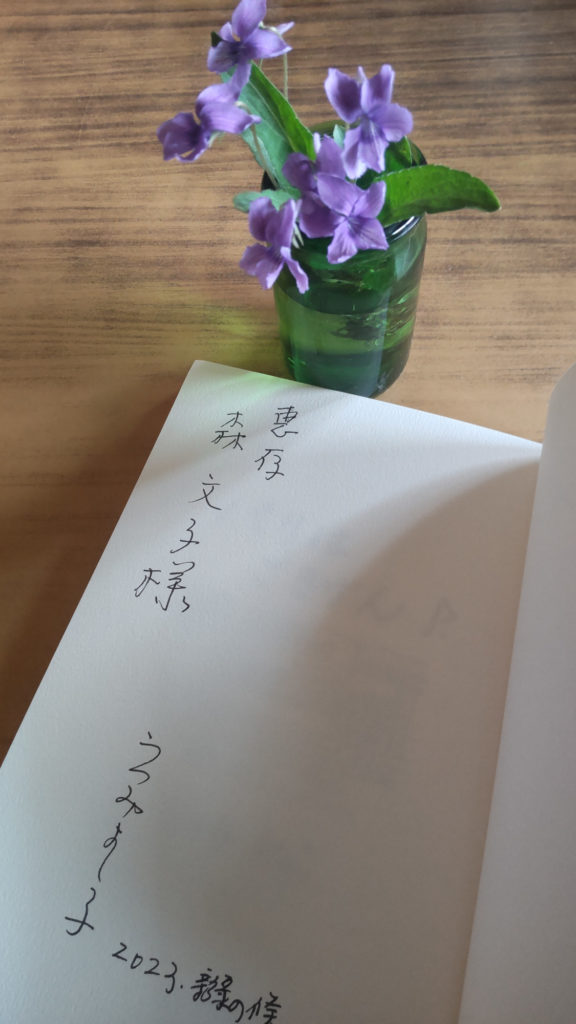 惠存
森文子様
うつみよし子
2023.新緑の候